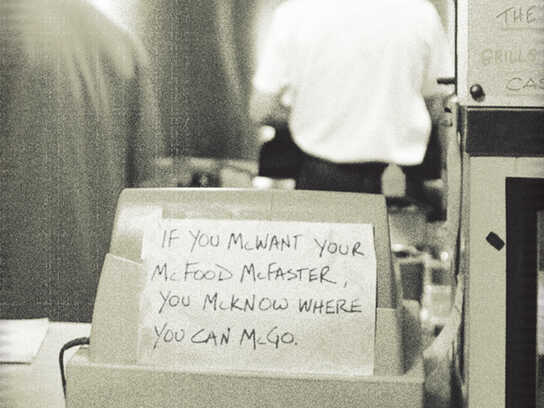 IF YOU McWANT YOUR
McFOOD McFASTER,
YOU McKNOW WHERE
YOU CAN McGO.
THE
GRILLS
CAS